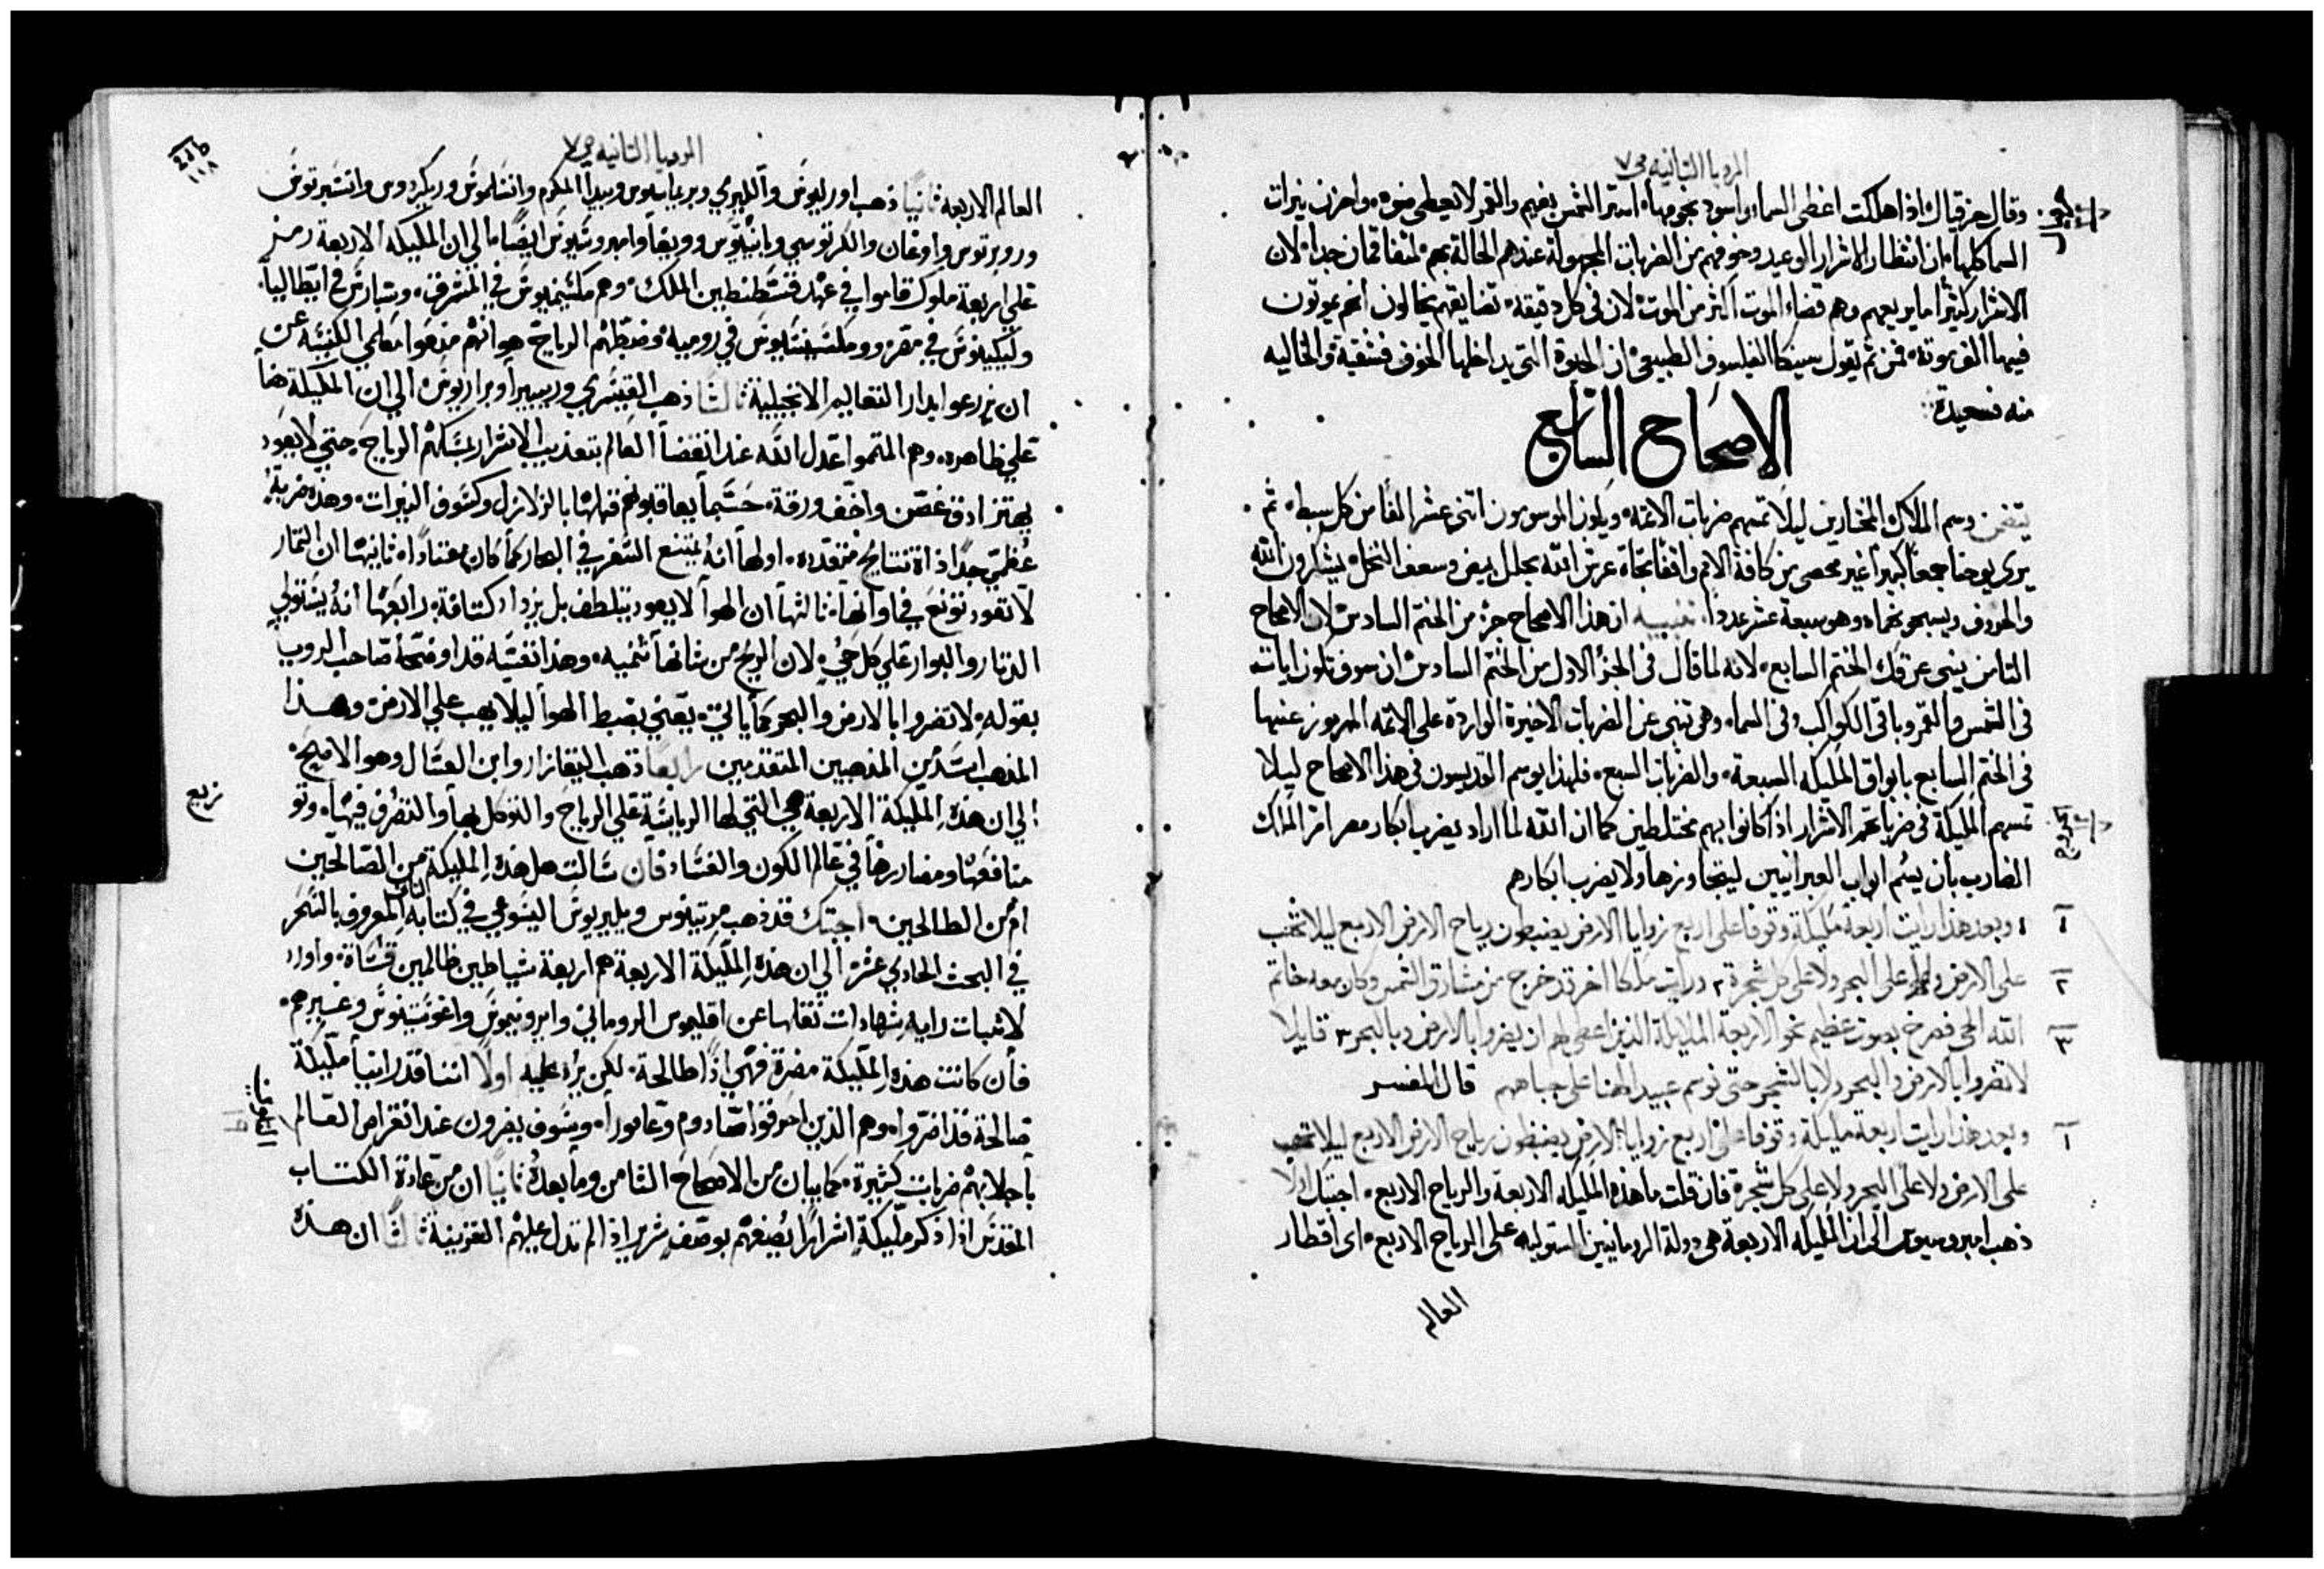 الرويا الثانيه ص٧
وقال حزقيال اذا هلكت اغطى السما واسود نجومها استر الشمس بغيم والقمر لا يعطى ضوه واحزن نيرات
السما كلها ان انتظار الاشرار الوعيد وخوفهم من الضربات المجهولة عندهم الحالة بهم لنفاقهم جدا لان
الاشرار كثيرا ما يريعهم وهم قضاء الموت اكثر من الموت لان فى كل دقيقة تضايقهم يخالون انهم يموتون
فيها الف موتة فمن ثم يقول سينكا الفيلسوف الطبيعى ان الحيوة التى يداخلها الخوف فشقية والخاليه
منه فسعيدة
الاصحاح السابع
يتضمن وسم الملاك المختارين ليلا تمسهم ضربات الائمه ويكون الموسومون اثنى عشر الفا من كل سبط ثم
يرى يوحنا جمعا كبيرا غير محصى من كافة الامم واقفا تجاة عرش الله بحلل بيض وسعف النخل يشكرون الله
والخروف ويسبحونهما وهو سبعة عشر عددا تنبيه ان هذا الاصحاح جز من الختم السادس لان الاصحاح
الثامن ينبى عن فك الختم السابع لانه لما قال فى الجز الاول من الختم السادس ان سوف تكون ايات
فى الشمس والقمر وباقى الكواكب وفى السما وهى تنبى عن الضربات الاخيرة الواردة على الائمه المرموز عنها
فى الختم السابع بابواق المليكه السبعة والضربات السبع فلهذا يوسم القديسون فى هذا الاصحاح ليلا
تمسهم المليكة فى ضرباتهم الاشرار اذا كانوا بهم مختلطين كما ان الله لما اراد يضرب ابكار مصر امر الملاك
الضارب بان يسم ابواب العبرانيين ليتجاوزها ولا يضرب ابكارهم
١ وبعد هذا رايت اربعة مليكة وقوفا على اربع زوايا الارض يضبطون رياح الارض الاربع ليلا تهب
على الارض ولا على البحر ولا على كل شجرة ٢ ورايت ملاكا اخر قد خرج من مشارق الشمس وكان معه خاتم
الله الحى فصرخ بصوت عظيم نحو الاربعة الملايكة الذين اعطى لهم ان يضروا بالارض وبالبحر ٣ قايلا
لا تضروا بالارض والبحر ولا بالشجر حتى نوسم عبيد الهنا على جباههم قال المفسر
وبعد هذا رايت اربعة مليكة وقوفا على اربع زوايا الارض يضبطون رياح الارض الاربع ليلا تهب
على الارض ولا على البحر ولا على كل شجرة فان قلت ما هذه المليكه الاربعة والرياح الاربع اجبتك اولا
ذهب امبروسيوس الى ان المليكه الاربعة هى دولة الرومانيين المستوليه على الرياح الاربع اى اقطار
العالم
١
٢
٣
١
الرويا الثانيه ص٧
١١٨
العالم الاربعة ثانيا ذهب اوريليوس والبيري وبريماسيوس وبيدا المكرم وانسلموس وريكردوس وانسبرتوس
وروبرتوس واوغان والكرتوسي وبانيغوس وويغا وامبروسيوس ايضا الي ان المليكه الاربعة رمز
علي اربعة ملوك قاموا في عهد قسطنطين الملك وهم مكسيميوس في المشرق وسبارس في ايطاليا
وليكينوس في مصر ومكسنتيوس في رومية وضبطهم الرياح هو انهم منعوا معلمي الكنيسه عن
ان يزرعوا بدار التعاليم الانجيلية ثالثا ذهب القيسري وريبيرا وبراريوس الي ان المليكة هنا
علي ظاهره وهم المتموا عدل الله عند انقضا العالم بتعذيب الاشرار بمسكهم الرياح حتي لا يعود
يهتز ادق غصن واخف ورقة حسبما يعاقبونهم قبلها بالزلازل وكسوف النيرات وهذه ضربة
عظمي جدا ذاة نتايج متعدده اولها انه يمتنع السفر في البحار كما كان معتادا ثانيها ان الثمار
لا تعود تونع في اوانها ثالثها ان الهوا لا يعود يتلطف بل يزداد كثافة رابعها انه يستولي
الدثار والبوار علي كل حي لان الريح من شانها تنميه وهذا نفسه قد اوضحه صاحب الرويا
بقوله لا تضروا بالارض والبحر كما ياتي يعني بضبط الهوا ليلا يهب علي الارض وهذا
المذهب اسد من المذهبين المتقدمين رابعا ذهب اليغازار وابن العسال وهو الاصح
الي ان هذه المليكة الاربعة هي التي لها الرياسة علي الرياح والتوكل بها والتصرف فيها وتو
زيع
منافعها ومضاررها في عالم الكون والفساد فان سالت هل هذه المليكة من الصالحين
ام من الطالحين اجبتك قد ذهب مرتينوس ويليريوس اليسوعي في كتابه المعروف بالبحر
في البحث الحادي عشر الي ان هذه المليكة الاربعة هم اربعة شياطين ظالمين قساة واورد
لاثبات رايه شهادات نقلها عن اقليموس الروماني وايرونيموس واغوستينوس وغيرهم
فان كانت هذه المليكة مضرة فهي اذا طالحة لكن يرد عليه اولا اننا قد راينا مليكة
صالحة قد اضروا وهم الذين احرقوا صادوم وعامورا وسوف يضرون عند انقراض العالم
باجلابهم ضربات كثيرة كما يبان من الاصحاح الثامن وما بعده ثانيا ان من عادة الكتاب
المقدس اذا ذكر مليكة اشرارا يصفهم بوصف شرير اذا لم تدل عليهم القرينة ثالثا ان هذه
التكوين
١٩